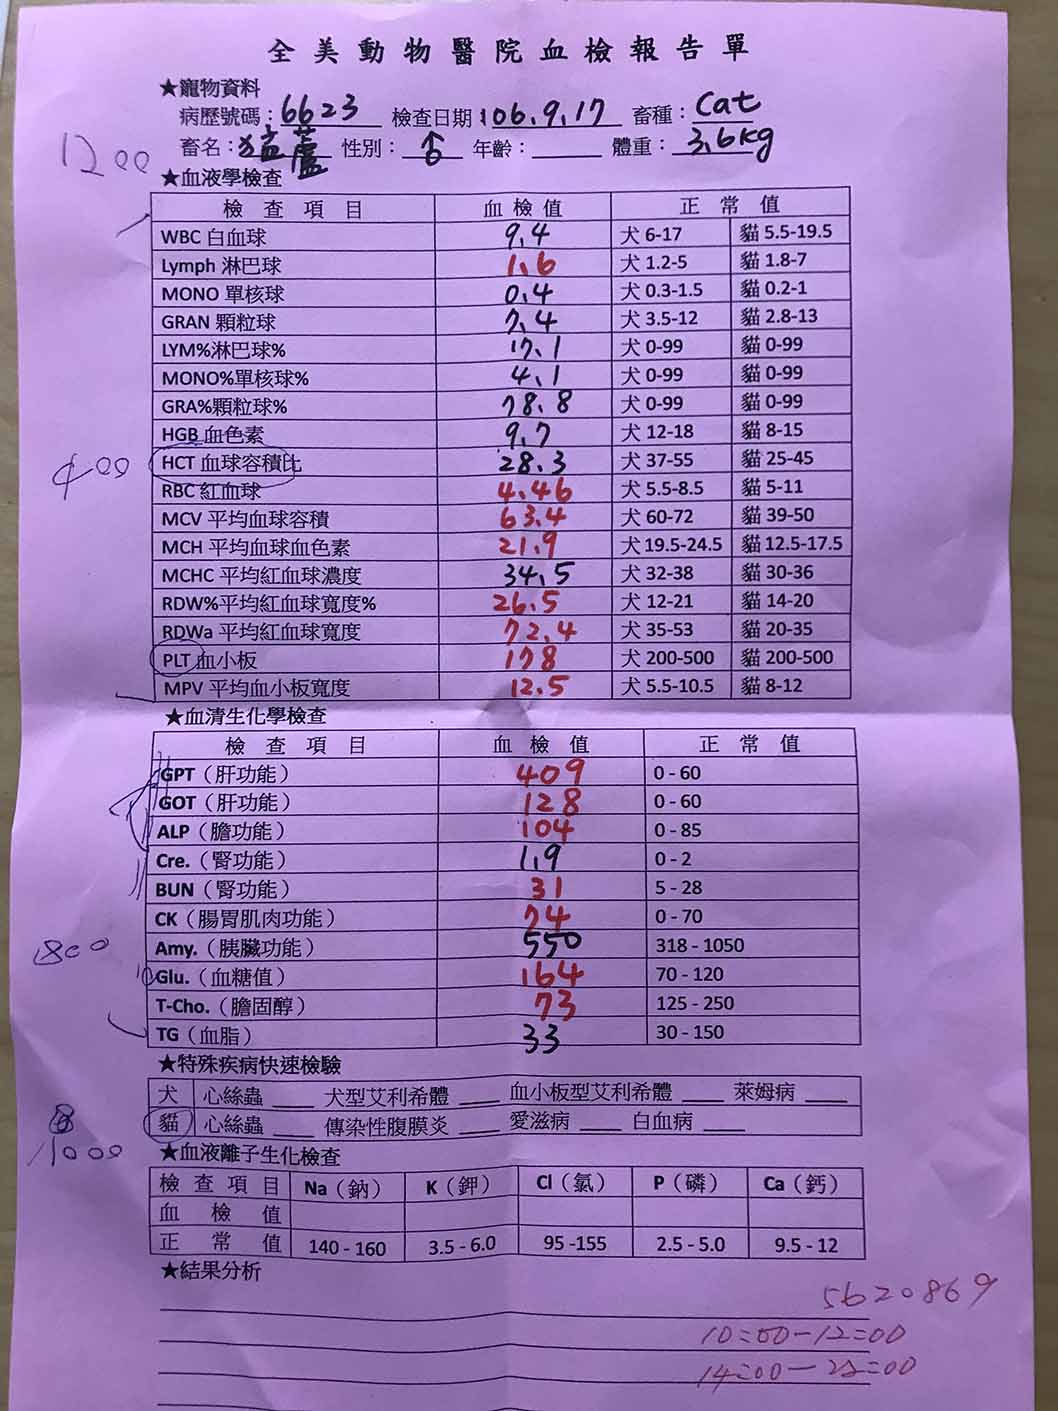 全美動物醫院血檢報告單
★寵物資料
病歷號碼：6623 檢查日期：106.9.17 畜種：Cat
畜名：蘆 性別：♂ 年齡：____ 體重：3.6kg
1200
★血液學檢查
檢查項目 血檢值 正常值
WBC 白血球 9.4 犬 6-17 貓 5.5-19.5
Lymph 淋巴球 1.6 犬 1.2-5 貓 1.8-7
MONO 單核球 0.4 犬 0.3-1.5 貓 0.2-1
GRAN 顆粒球 7.4 犬 3.5-12 貓 2.8-13
LYM%淋巴球% 17.1 犬 0-99 貓 0-99
MONO%單核球% 4.1 犬 0-99 貓 0-99
GRA%顆粒球% 78.8 犬 0-99 貓 0-99
HGB 血色素 9.7 犬 12-18 貓 8-15
400 HCT 血球容積比 28.3 犬 37-55 貓 25-45
RBC 紅血球 4.46 犬 5.5-8.5 貓 5-11
MCV 平均血球容積 63.4 犬 60-72 貓 39-50
MCH 平均血球血色素 21.9 犬 19.5-24.5 貓 12.5-17.5
MCHC 平均紅血球濃度 34.5 犬 32-38 貓 30-36
RDW%平均紅血球寬度% 26.5 犬 12-21 貓 14-20
RDWa 平均紅血球寬度 72.4 犬 35-53 貓 20-35
PLT 血小板 178 犬 200-500 貓 200-500
MPV 平均血小板寬度 12.5 犬 5.5-10.5 貓 8-12
★血清生化學檢查
檢查項目 血檢值 正常值
GPT（肝功能） 409 0 - 60
GOT（肝功能） 128 0 - 60
ALP（膽功能） 104 0 - 85
Cre.（腎功能） 1.9 0 - 2
BUN（腎功能） 31 5 - 28
CK（腸胃肌肉功能） 74 0 - 70
Amy.（胰臟功能） 550 318 - 1050
1800
Glu.（血糖值） 164 70 - 120
T-Cho.（膽固醇） 73 125 - 250
TG（血脂） 33 30 - 150
★特殊疾病快速檢驗
犬 心絲蟲 ____ 犬型艾利希體 ____ 血小板型艾利希體 ____ 萊姆病 ____
貓 心絲蟲 ____ 傳染性腹膜炎 ____ 愛滋病 ____ 白血病 ____
1000
★血液離子生化檢查
檢查項目 Na（鈉） K（鉀） Cl（氯） P（磷） Ca（鈣）
血檢值
正常值 140 - 160 3.5 - 6.0 95 -155 2.5 - 5.0 9.5 - 12
★結果分析
5620869
10:00-12:00
14:00-22:00